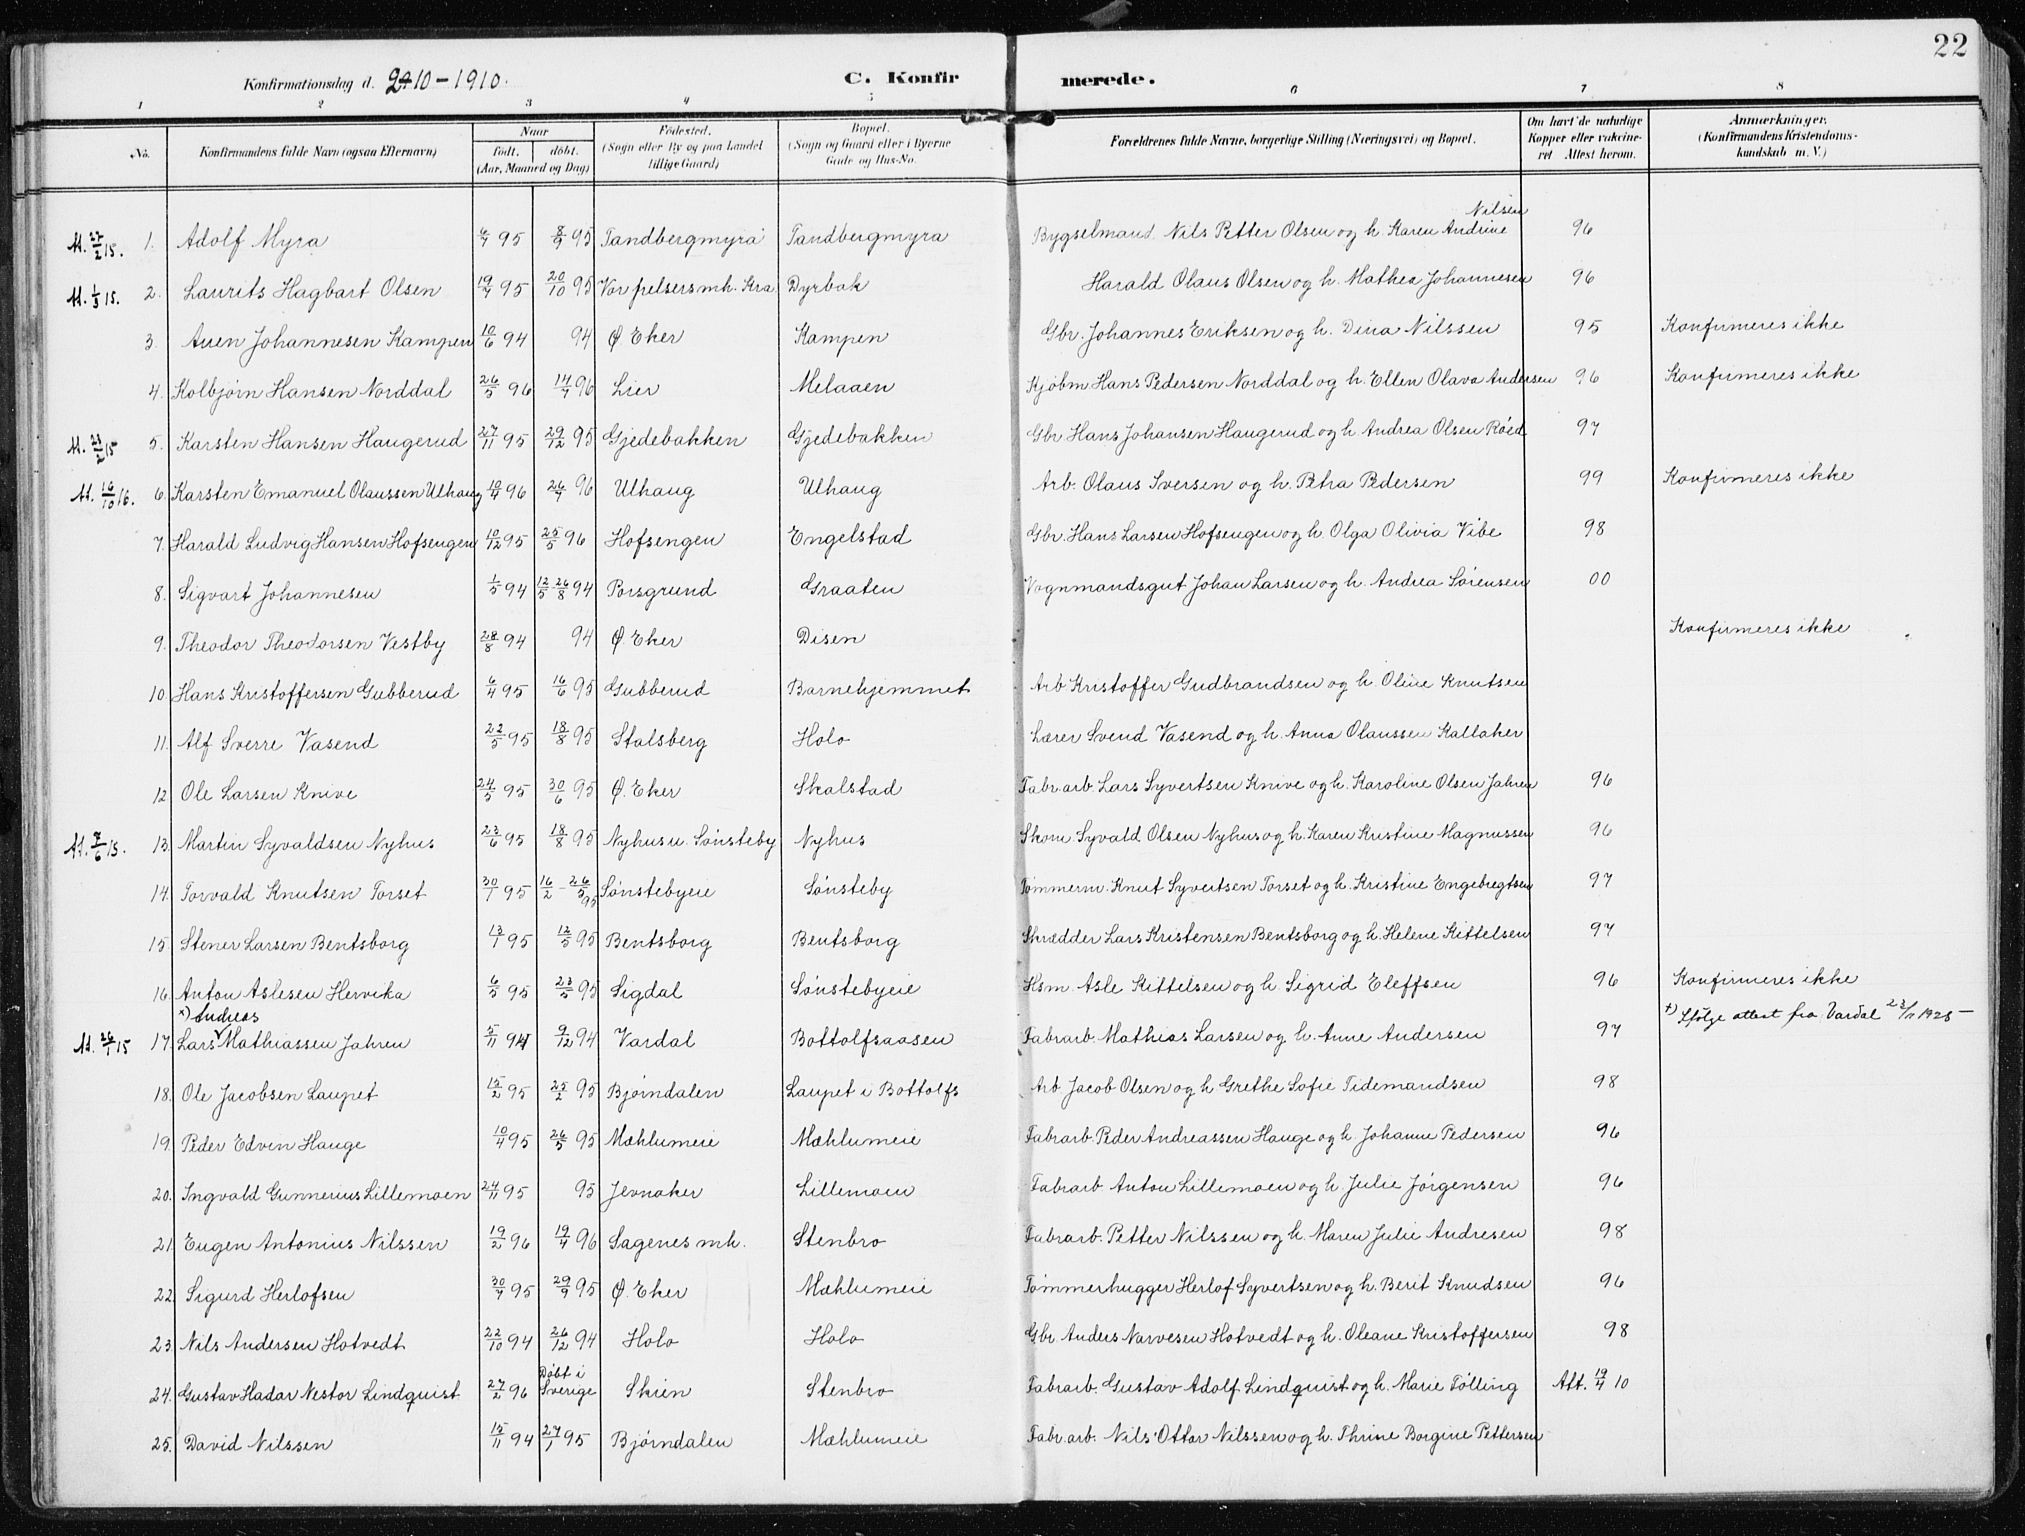 22
Konfirmationsdag d. 9-10-1910. C. Konfir merede.
1 2 3 4 5 6 7 8
No. Konfirmandens fulde Navn (ogsaa Efternavn) Naar født. døbt. (Aar, Maaned og Dag) Fødested. (Sogn eller By og paa Landet tillige Gaard) Bopæl. (Sogn og Gaard eller i Byerne Gade og Hus-No. Forældrenes fulde Navne, borgerlige Stilling (Næringsvei) og Bopæl. Om havt de naturlige Kopper eller vakcineret Attest herom. Anmærkninger. (Konfirmandens Kristendomskundskab m. V.)
Nilsen
At. 27/2 15. 1. Adolf Myra 95 8/9 95 Tandbergmyra Tandbergmyra Bygselmand Nils Petter Olsen og h. Karen Andrine 96
At. 1/3 15. 2. Laurits Hagbart Olsen 19/7 95 20/10 95 Vor frelsers mh. Kra Dyrbak Harald Olaus Olsen og h. Mathea Johannesen 96
3. Johannesen Kampen 10/6 94 94 Ø Eker Kampen Gbr. Johannes Eriksen og h. Dina Nilssen 95 Konfirmeres ikke
4. Kolbjørn Hansen Norddal 26/5 96 14/7 96 Lier Melaaen Kjøbm Hans Pedersen Norddal og h. Ellen Olava Andersen 96 Konfirmeres ikke
At. 15 5. Karsten Hansen Haugerud 27/11 95 29/12 95 Gjedebakken Gjedebakken Gbr. Hans Johansen Haugerud og h. Andrea Olsen Røed 97
At. 16/10 16. 6. Karsten Emanuel Olaussen Ulhaug 10/4 96 26/7 96 Ulhaug Ulhaug Arb. Olaus Iversen og h. Petra Pedersen 99 Konfirmeres ikke
7. Harald Ludvig Hansen Hofsengen 10/12 95 25/5 96 Hofsengen Engelstad Gbr. Hans Larsen Hofsengen og h. Olga Olivia Vibe 98
8. Sigvart Johannesen 1/5 94 12/5 26/8 94 Porsgrund Graaten Vognmandsgut Johan Larsen og h. Andrea Sørensen 00
9. Theodor Theodorsen Vestby 28/8 94 94 Ø. Eker Disen Konfirmeres ikke
10. Hans Kristoffersen Gubberud 6/4 95 16/6 95 Gubberud Barnehjemmet Arb Kristoffer Gudbrandsen og h. Oline Knutsen
11. Alf Sverre Vasend 22/5 95 18/8 95 Stalsberg Holo Lærer Svend Vasend og h. Anna Olaussen Kallaker
12 Ole Larsen Knive 24/5 95 30/6 95 Ø. Eker Skalstad Fabr.arb. Lars Syvertsen Knive og h. Karoline Olsen Jahren 96
At. 7/6 15. 13. Martin Syvaldsen Nyhus 23/6 95 18/8 95 Nyhus u. Sønsteby Nyhus Skom. Syvald Olsen Nyhus og h. Karen Kristine Magnussen 96
14. Torvald Knutsen Torset 30/1 95 16/2 - 26/5 95 Sønstebyeie Sønsteby Tømmerm. Knut Syvertsen Torset og h. Kristine Engebregtsen 97
15. Stener Larsen Bentsborg 13/1 95 12/5 95 Bentsborg Bentsborg Skrædder Lars Kristensen Bentsborg og h. Helene Kittelsen 97
16. Anton Aslesen Hervika 6/5 95 23/5 95 Sigdal Sønstebyeie Hsm. Asle Kittelsen og h. Sigrid Eleffsen 96 Konfirmeres ikke
x) Andreas x) Ifølge attest fra Vardal 23/1 1925 -
At. 26/1 15 17. Lars Mathiassen Jahren 5/11 94 9/12 94 Vardal Bottolfsaasen Fabrarb. Mathias Larsen og h. Anne Andersen 97
18. Ole Jacobsen Laupet 15/2 95 25/2 95 Bjørndalen Laupet i Bottolfs Arb Jacob Olsen og h Grethe Sofie Tidemandsen 98
19. Peder Edvin Hauge 10/4 95 26/5 95 Mæhlumeie Mæhlumeie Fabrarb. Peder Andreassen Hauge og h. Johanne Pedersen 96
20. Ingvald Gunnerius Lillemoen 24/11 95 95 Jevnaker Lillemoen Fabrarb Anton Lillemoen og h. Julie Jørgensen 96
21. Eugen Antonius Nilssen 19/2 96 19/4 96 Sagenes mh. Stenbro Fabrarb. Petter Nilssen og h. Maren Julie Andresen 98
22. Sigurd Herlofsen 30/7 95 29/9 95 Ø. Eker Mæhlumeie Tømmerhugger Herlof Syvertsen og h. Berit Knudsen 96
23. Nils Andersen Hotvedt 22/10 94 26/12 94 Holo Holo Gbr Anders Narvesen Hotvedt og h. Oleane Kristoffersen 98
24. Gustav Hadar Nestor Lindquist 27/2 96 Døbt i Sverige Skien Stenbro Fabrarb. Gustav Adolf Lindquist og h. Marie Følling Att. 19/4 10
25. David Nilssen 15/11 94 27/1 95 Bjørndalen Mæhlumeie Fabr.arb. Nils Ottar Nilssen og h. Thrine Borgine Pettersen